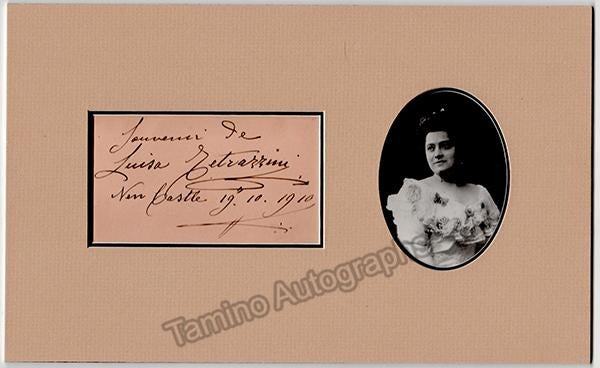 Souvenir de
Luisa Tetrazzini.
New Castle 19. 10. 1910
Tamino Autographs